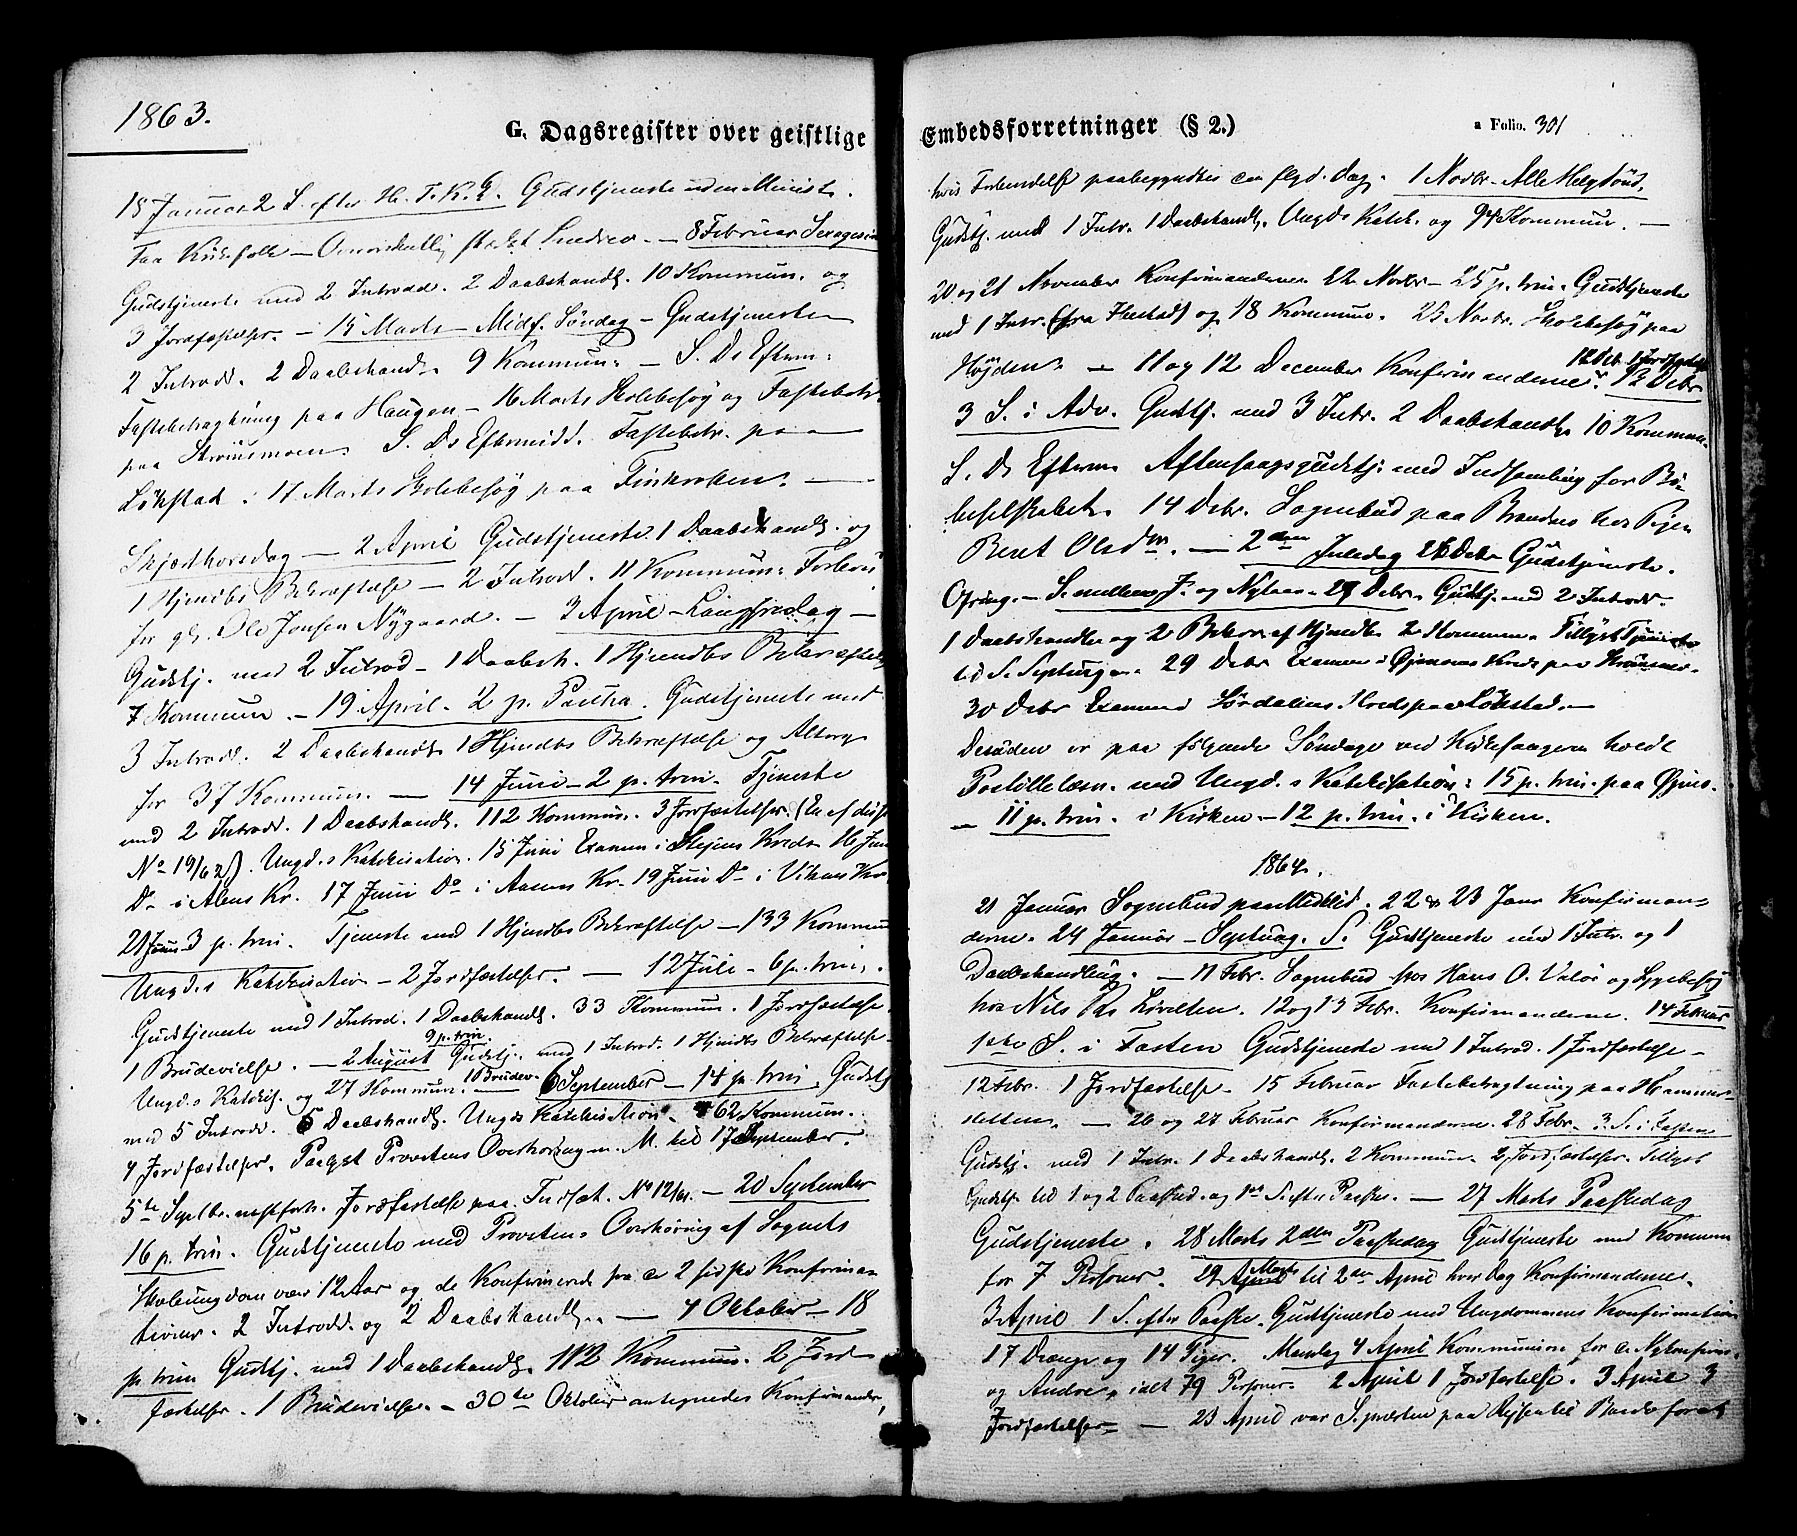 1863.
G. Dagsregister over geistlige
18 Januar 2 S. efter H. T. K. G. Gudstjeneste uden Minist.
Faa Kirkefolk — — 8 Februar Sexagesim
Gudstjeneste med 2 Introd. 2 Daabshandl. 10 Kommun. og
3 Jordfæstelser. — 15 Marts — Midf. Søndag — Gudstjeneste
2 Introd. 2 Daabshandl. 9 Kommun. — S. D. Efterm.
Fastebetragtning paa Haugen — 16 Marts Skolebesøg og Fastebetr.
paa Strømsmoen. S. D. Eftermidd. Fastebetr. paa
Løkstad. 17 Marts Skolebesøg paa Finkroken. —
Skjærthorsdag — 2 April Gudstjeneste. 1 Daabshandl. og
1 Hjemdbs Bekræftelse — 2 Introd. 11 Kommun.
for Ole Jonsen Nygaard. — 3 April — Langfredag —
Gudstj. med 2 Introd — 1 Daabsh. 1 Hjemdbs Bekræftelse
7 Kommun. — 19 April — 2 p. Pascha. Gudstjeneste med
3 Introd. 2 Daabshandl. 1 Hjemdbs Bekræftelse og Alterg.
for 37 Kommun. — 14 Juni — 2 p. trin. Tjeneste
med 2 Introd. 1 Daabshandl. 112 Kommun. 3 Jordfæstelser. (En af disse
No 19/62). Ungd.s Katekisation. 15 Juni Examen i Kreds. 16 Juni
Do i Alens Kr. 17 Juni Do i Aasens Kr. 19 Juni Do i Vikens Kr.
21 Juni 3 p. trin. Tjeneste med 1 Hjemdbs Bekræftelse — 133 Kommun
Ungd.s Katekisation — 2 Jordfæstelser. — 12 Juli — 6 p. trin.
Gudstjeneste med 1 Introd. 1 Daabshandl. 33 Kommun. 1 Jordfæstelse
9 p. trin.
1 Brudevielse. — 2 August Gudstj. med 1 Introd. 1 Hjemdbs Bekræftelse —
Ungd.s Katekis. og 27 Kommun. 1 Brudev. 6 September — 14 p. trin. Gudstj
med 5 Introd. 5 Daabshandl. Ungds Katekisation. 62 Kommun.
4 Jordfæstelser. Paalyst Provstens Overhøring M. til 17 September.
5te Septbr. Jordfæstelse paa No 12/61. — 20 September
16 p. trin. Gudstjeneste med Provstens Overhøring af Sognets
Skoleungdom over 12 Aar og de Konfirmerede fra de 2 sidste Konfirma-
tioner. 2 Introd. og 2 Daabshandl. — 4 Oktober — 18
p. trin Gudstj. med 1 Daabshandl. 112 Kommun. 2 Jord-
fæstelser. 1 Brudevielse. — 30te Oktober antegnedes Konfirmander,
Embedsforretninger (§ 2.)
a Folio. 301
hvis Forberedelse paabegyndtes en flgd. dag. 1 Novbr. Alle Helg. Sønd.
Gudstj. med 1 Intr. 1 Daabshandl. Ungds Katek. og 94 Kommun. —
20 og 21 November Konfirmanderne 22 Novbr — 25 p. trin. Gudstjeneste
med 1 Intr. og 18 Kommun. 25 Novbr. Skolebesøg paa
12 Debr. 1 Jordfæstelse
Højden. — 11 og 12 December Konfirmanderne. 13 Debr
3 S. i Adv. Gudstj. med 3 Intr. 2 Daabshandl. 10 Kommun.
S. D. Efterm Aftensangsgudstj. med Indsamling for Bi-
belselskabet. 14 Debr. Sognebud paa hos Pigen
Beret Olsdtr. — 2den Juledag 26 Debr Gudstjeneste.
Ofring. — S. mellem J. og Nytaar 27 Debr. Gudstj. med 2 Introd.
1 Daabshandl. og 2 Bekr. af Hjemdb. 2 Kommun. Tillyst Tjeneste
til S. Septuag. 29 Debr. Examen i Øjenæs Kreds paa
30 Debr Examen i Sørdalens Kreds paa Løkstad. —
Desuden er paa følgende Søndage ved Kirkesangeren holdt
Postillelæsn. med Ungd.s Katekisation: 15 p. trin. paa Øjnes.
— 11 p. trin. i Kirken — 12 p. trin. i Kirken.
1864.
21 Januar Sognebud paa . 22 & 23 Janr Konfirman-
derne. 24 Januar — Septuag. S. Gudstjeneste med 1 Intr. og 1
Daabshandling. — 11 Febr. Sognebud hos Hans O. og Sygebesøg
hos Nils . 12 og 13 Febr. Konfirmanderne. 14 Februar
1ste S. i Fasten Gudstjeneste med 1 Introd. 1 Jordfæstelse —
12 Febr. 1 Jordfæstelse. 15 Februar Fastebetragtning paa Hammer-
sletten. — 26 og 27 Februar Konfirmanderne. 28 Febr. 3. S. i Fasten
Gudstj. med 1 Intr. 1 Daabshandl. 2 Kommun. 2 Jordfæstelser. Tillyst
Gudstj. til 1 og 2 Paaskd. og 1ste S. efter Paaske. — 27 Marts Paaskedag
Gudstjeneste. 28 Marts 2den Paaskedag Gudstjeneste med Kommun
for 7 Personer. 29 Marts til 2den April hver dag Konfirmanderne.
3 April 1 S. efter Paaske. Gudstjeneste med Ungdommens Konfirmation
17 Drenge og 14 Piger. Mandag 4 April Kommunion for de Nykonfirm.
og Andre, ialt 79 Personer. 2 April 1 Jordfæstelse. 3 April 3
Jordfæstelser — 23 April var S.præsten paa Rejsen til